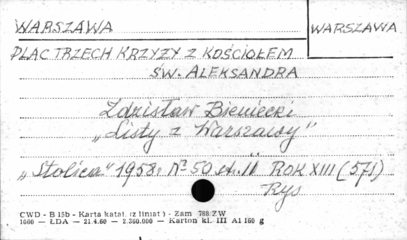 WARSZAWA
WARSZAWA
PLAC TRZECH KRZYŻY Z KOŚCIOŁEM
ŚW. ALEKSANDRA
Zdzisław Bieniecki
„Listy z Warszawy"
„Stolica" 1958r. No 50 st. 11 ROK XIII (571)
Rys
CWD - B 15b - Karta katal. (z liniat) - Zam 788/ZW
1080 — ŁDA — 21.4.60 — 2.200.000 — Karton kl. III A1 160 g